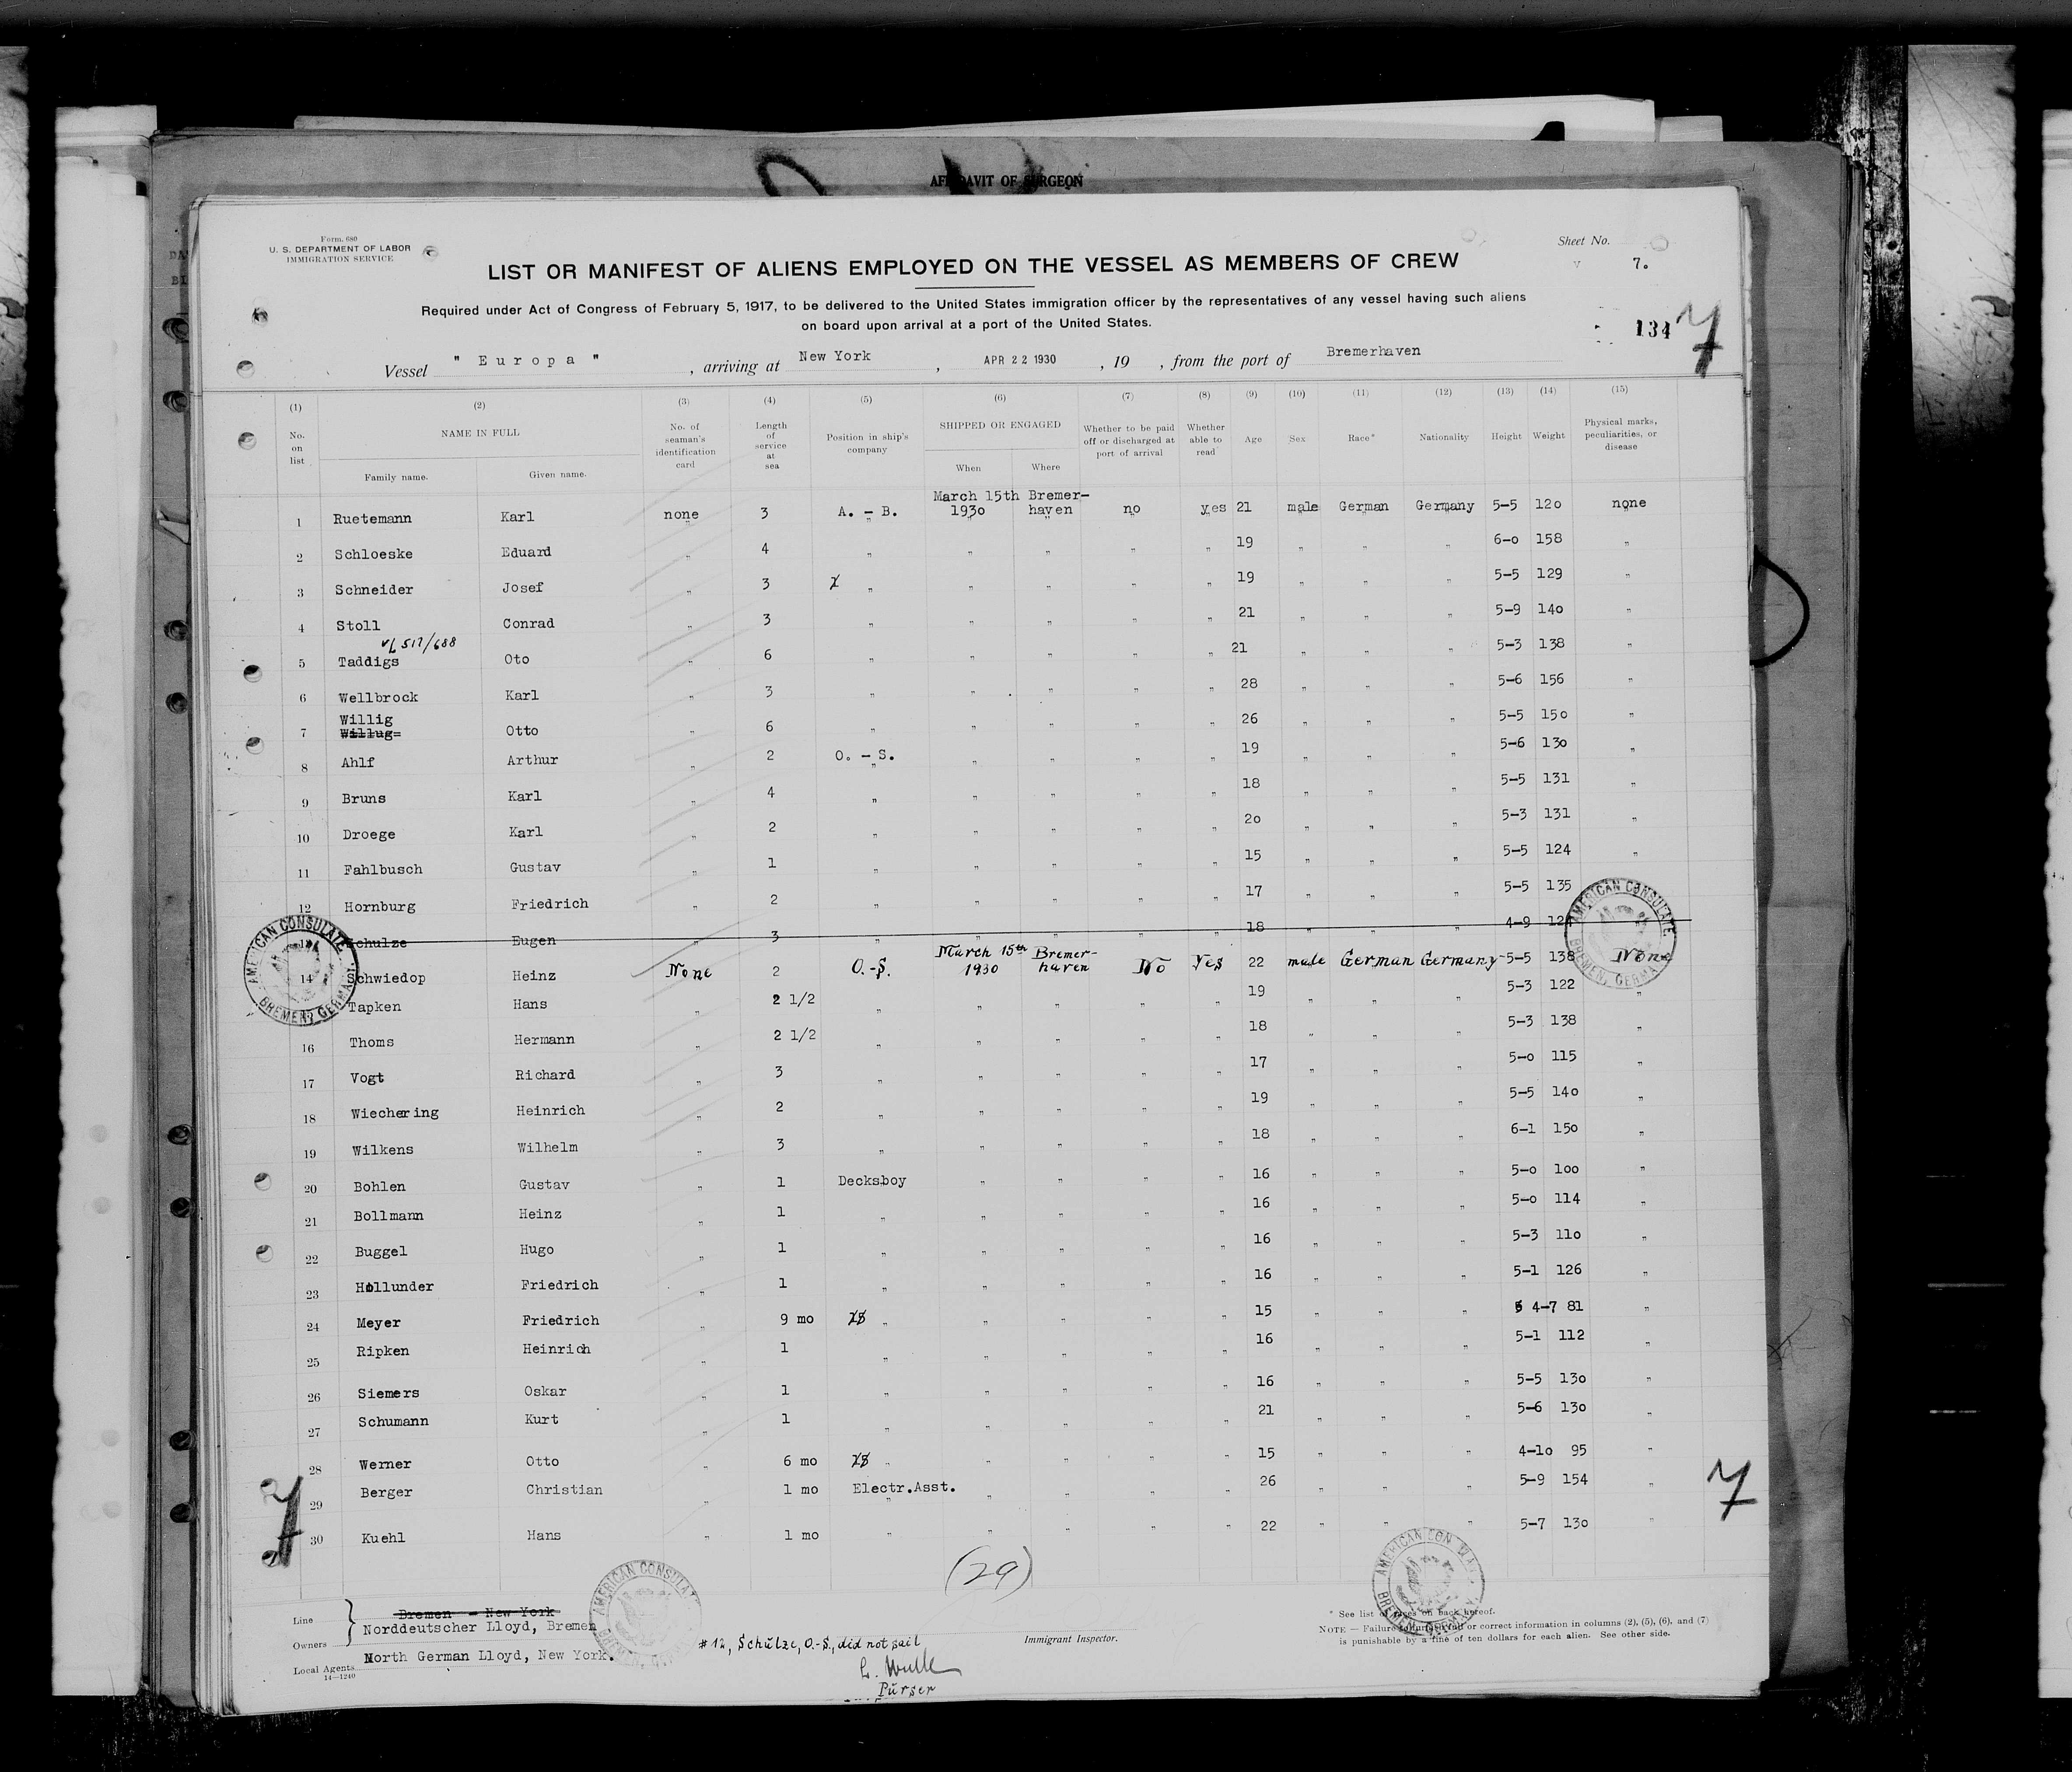 AFFIDAVIT OF SURGEON
Form 680
U. S. DEPARTMENT OF LABOR
IMMIGRATION SERVICE
Sheet No.
7.
LIST OR MANIFEST OF ALIENS EMPLOYED ON THE VESSEL AS MEMBERS OF CREW
Required under Act of Congress of February 5, 1917, to be delivered to the United States immigration officer by the representatives of any vessel having such aliens
on board upon arrival at a port of the United States.
134 7
Vessel " Europa " , arriving at New York , APR 22 1930 , 19 , from the port of Bremerhaven
(1) (2) (3) (4) (5) (6) (7) (8) (9) (10) (11) (12) (13) (14) (15)
No. on list NAME IN FULL Family name. Given name. No. of seaman's identification card Length of service at sea Position in ship's company SHIPPED OR ENGAGED When Where Whether to be paid off or discharged at port of arrival Whether able to read Age Sex Race* Nationality Height Weight Physical marks, peculiarities, or disease
1 Ruetemann Karl none 3 A. - B. March 15th 1930 Bremer-haven no yes 21 male German Germany 5-5 120 none
2 Schloeske Eduard " 4 " " " " " 19 " " " 6-0 158 "
3 Schneider Josef " 3 " " " " " 19 " " " 5-5 129 "
4 Stoll Conrad " 3 " " " " " 21 " " " 5-9 140 "
517/688
5 Taddigs Oto " 6 " " " " " 21 " " " 5-3 138 "
6 Wellbrock Karl " 3 " " " " " 28 " " " 5-6 156 "
Willig
7 Willug= Otto " 6 " " " " " 26 " " " 5-5 150 "
8 Ahlf Arthur " 2 O. - S. " " " " 19 " " " 5-6 130 "
9 Bruns Karl " 4 " " " " " 18 " " " 5-5 131 "
10 Droege Karl " 2 " " " " " 20 " " " 5-3 131 "
11 Fahlbusch Gustav " 1 " " " " " 15 " " " 5-5 124 "
12 Hornburg Friedrich " 2 " " " " " 17 " " " 5-5 135
Schulze Eugen " 3 " " " " " 18 " " " 4-9
14 Schwiedop Heinz None 2 O.-S. March 15th 1930 Bremer-haven No Yes 22 male German Germany 5-5 138 None
Tapken Hans " 2 1/2 " " " " " 19 " " " 5-3 122 "
16 Thoms Hermann " 2 1/2 " " " " " 18 " " " 5-3 138 "
17 Vogt Richard " 3 " " " " " 17 " " " 5-0 115 "
18 Wiechering Heinrich " 2 " " " " " 19 " " " 5-5 140 "
19 Wilkens Wilhelm " 3 " " " " " 18 " " " 6-1 150 "
20 Bohlen Gustav " 1 Decksboy " " " " 16 " " " 5-0 100 "
21 Bollmann Heinz " 1 " " " " " 16 " " " 5-0 114 "
22 Buggel Hugo " 1 " " " " " 16 " " " 5-3 110 "
23 Hollunder Friedrich " 1 " " " " " 16 " " " 5-1 126 "
24 Meyer Friedrich " 9 mo " " " " " 15 " " " 4-7 81 "
25 Ripken Heinrich " 1 " " " " " 16 " " " 5-1 112 "
26 Siemers Oskar " 1 " " " " " 16 " " " 5-5 130 "
27 Schumann Kurt " 1 " " " " " 21 " " " 5-6 130 "
28 Werner Otto " 6 mo " " " " " 15 " " " 4-10 95 "
29 Berger Christian " 1 mo Electr.Asst. " " " " 26 " " " 5-9 154 "
30 Kuehl Hans " 1 mo " " " " " 22 " " " 5-7 130 "
7
7
(29)
AMERICAN CONSULATE
BREMEN, GERMANY
AMERICAN CONSULATE
BREMEN, GERMA
Line Bremen - New York
Owners Norddeutscher Lloyd, Bremen
Local Agents North German Lloyd, New York.
14-1240
#12, Schulze, O.-S., did not sail
Purser
Immigrant Inspector.
* See list of races on back hereof.
NOTE — Failure to furnish full or correct information in columns (2), (5), (6), and (7)
is punishable by a fine of ten dollars for each alien. See other side.